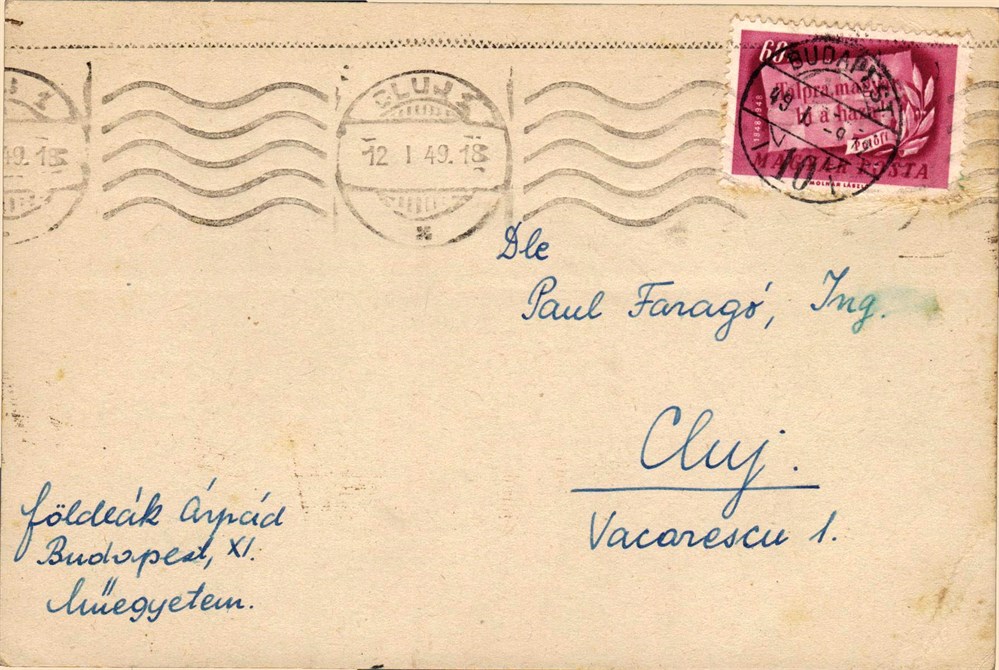 60
BUDAPEST
Talpra mag
hí a haza
Petőfi
1848-1948
MAGYAR POSTA
10
CLUJ 1
12 I 49.18
49.18
Dle
Paul Faragó, Ing.
Cluj.
Vacarescu 1.
Földeák Árpád
Budapest, XI.
Műegyetem.